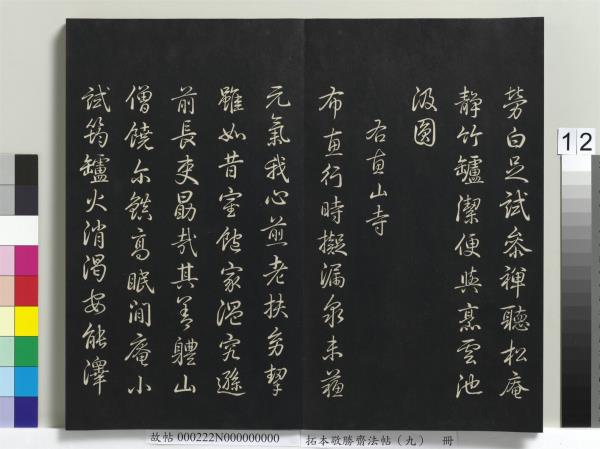 勞白足試參禪聽松庵
靜竹罏潔便與烹雲池
汲圓
右直山寺
布直行時擬漏泉未蘓
元氣我心煎老扶幼挈
雖如昔室饒家溫究遜
前長吏勗哉其善體山
僧饒尓餕高眠澗庵小
試筠罏火消渴安能澤
12
故帖 000222N000000000 拓本敬勝齋法帖（九） 冊